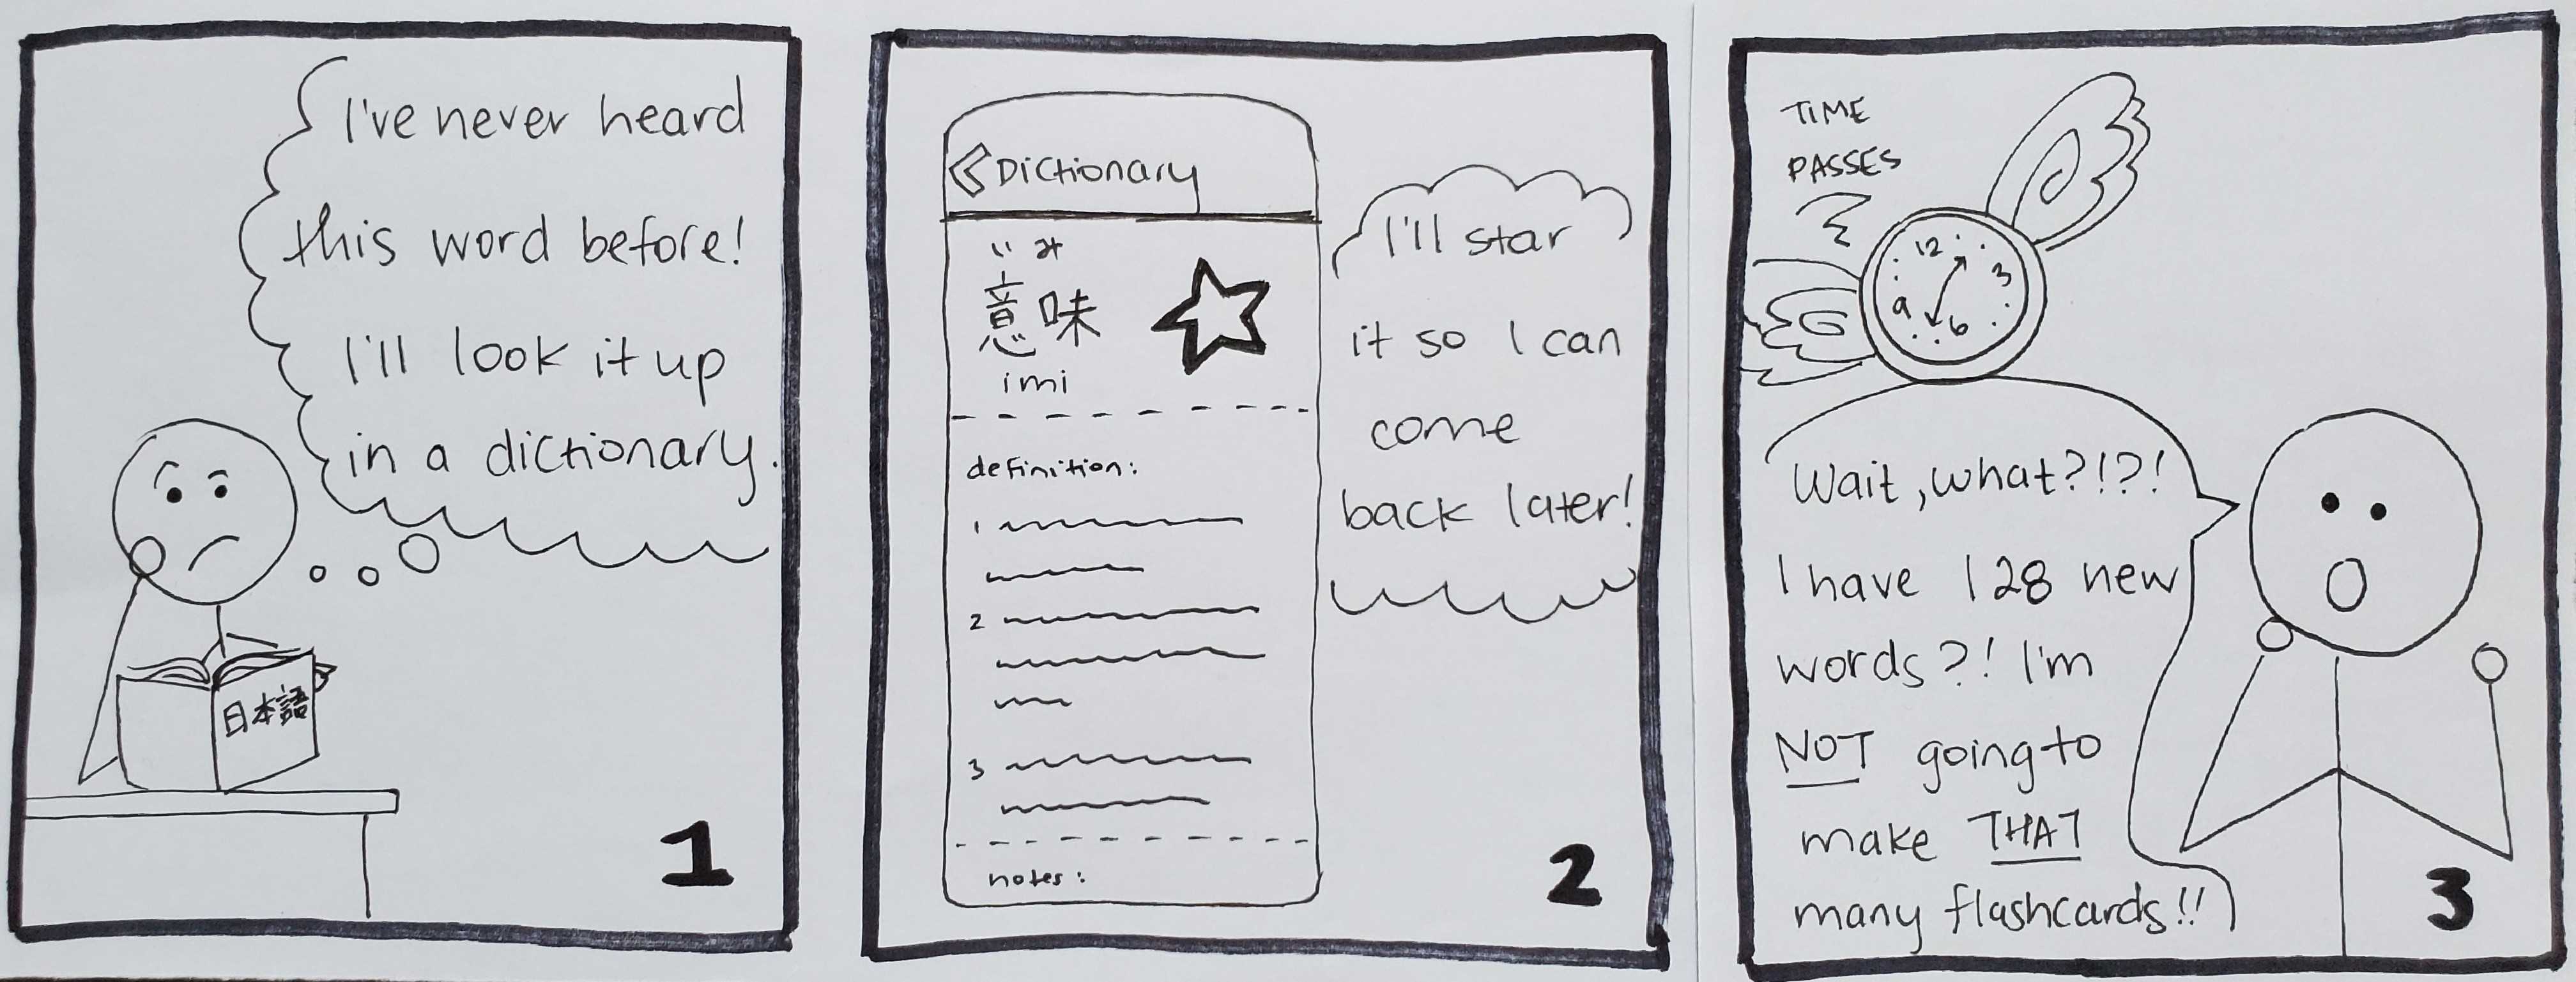 I've never heard
this word before!
I'll look it up
in a dictionary.
日本語
1
Dictionary
いみ
意味
imi
definition:
1
2
3
notes:
I'll star
it so I can
come
back later!
2
TIME
PASSES
12
3
6
9
Wait, what?!?!
I have 128 new
words?! I'm
NOT going to
make THAT
many flashcards!!
3